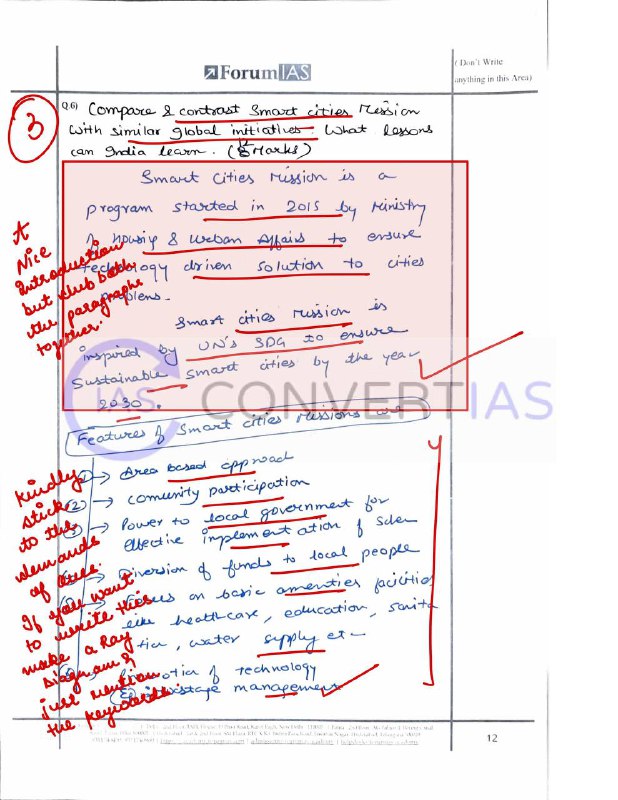 ForumIAS
( Don't Write
anything in this Area)
3
Q.6) Compare & contrast Smart cities Mission
with similar global initiatives. What lessons
can India learn. (8 Marks)
Smart Cities Mission is a
program started in 2015 by Ministry
of housing & urban Affairs to ensure
technology driven solution to cities
problems.
Smart cities mission is
inspired by UN's SDG to ensure
Sustainable smart cities by the year
2030.
A
Nice
Introduction
but club both
the paragraphs
together.
CONVERTIAS
IAS
Features of Smart cities Missions are
1 → Area based approach
2 → Comunity participation
3 → Power to local government for
effective implementation of
Diversion of funds to local people
Focus on basic amenties facilities
like healthcare, education, sanita
tion, water supply etc
of technology
management
Kindly
stick
to the
demands
of
If you want
to write this
make a Ray
Diagram &
just mention
the keywords.
12